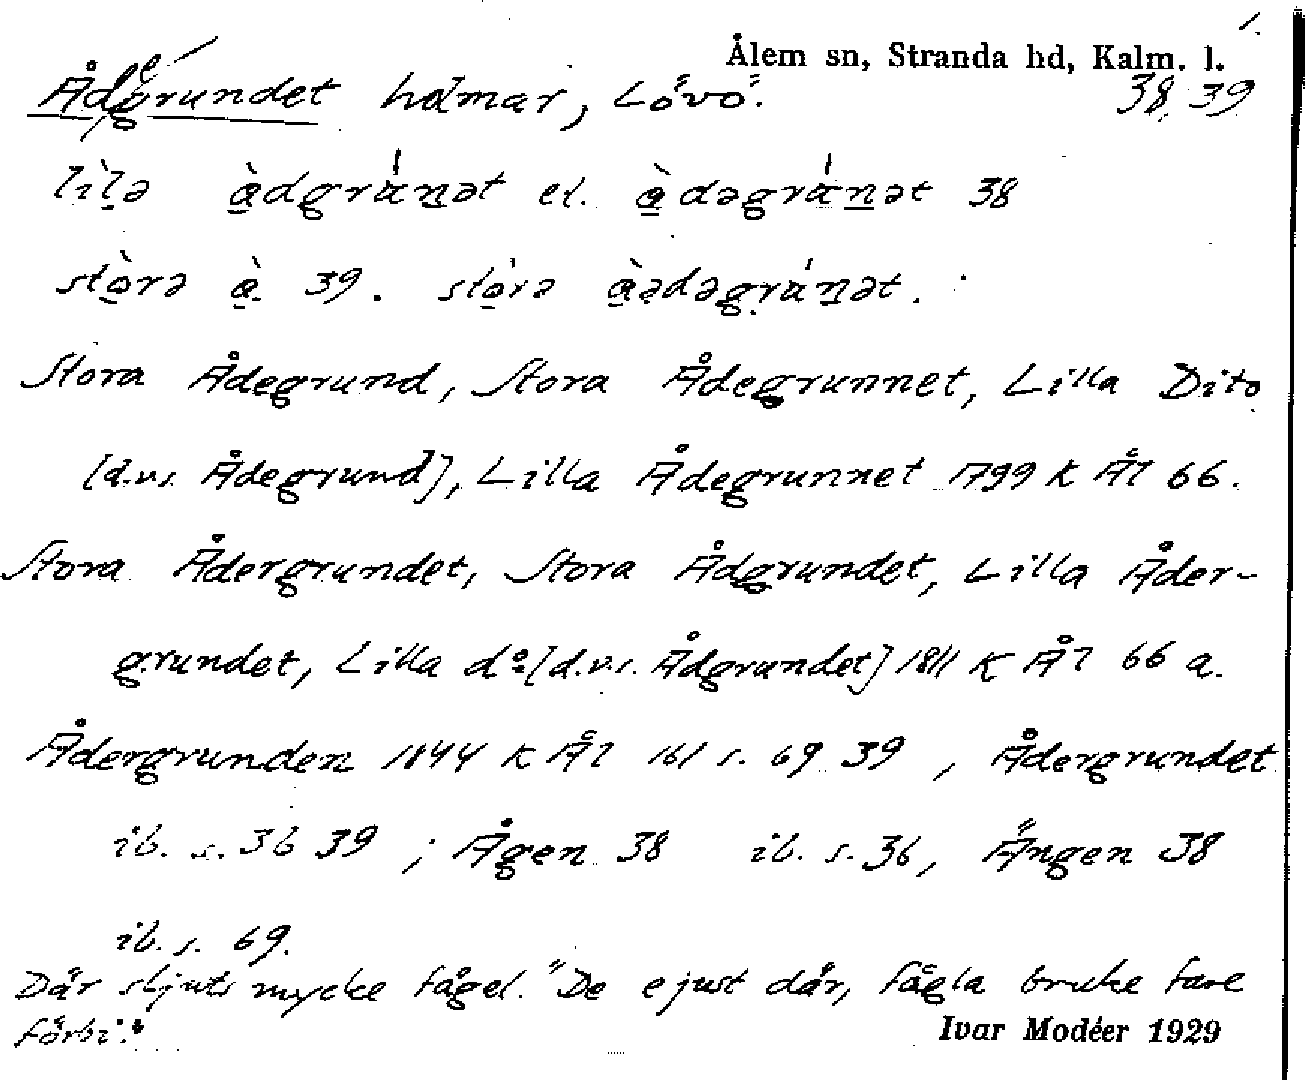 Ålem sn, Stranda hd, Kalm. l.
Ådegrundet holmar, Lövö. 38, 39
lìlə àdgrànət el. àdəgrànət 38
stòrə à. 39. stòrə àədəgrànət.
Stora Ådegrund, Stora Ådegrunnet, Lilla Dito
[d.v.s. Ådegrund], Lilla Ådegrunnet 1799 K Ål 66.
Stora Ådergrundet, Stora Ådgrundet, Lilla Åder-
grundet, Lilla do [d.v.s. Ådgrundet] 1811 K Ål 66 a.
Ådergrunden 1844 K Ål 161 s. 69 39, Ådergrundet
ib. s. 36 39; Ågen 38 ib. s. 36, Ängen 38
ib. s. 69.
Där skjuts mycke fågel. "De e just där, fågla bruke fare
förbi."
Ivar Modéer 1929